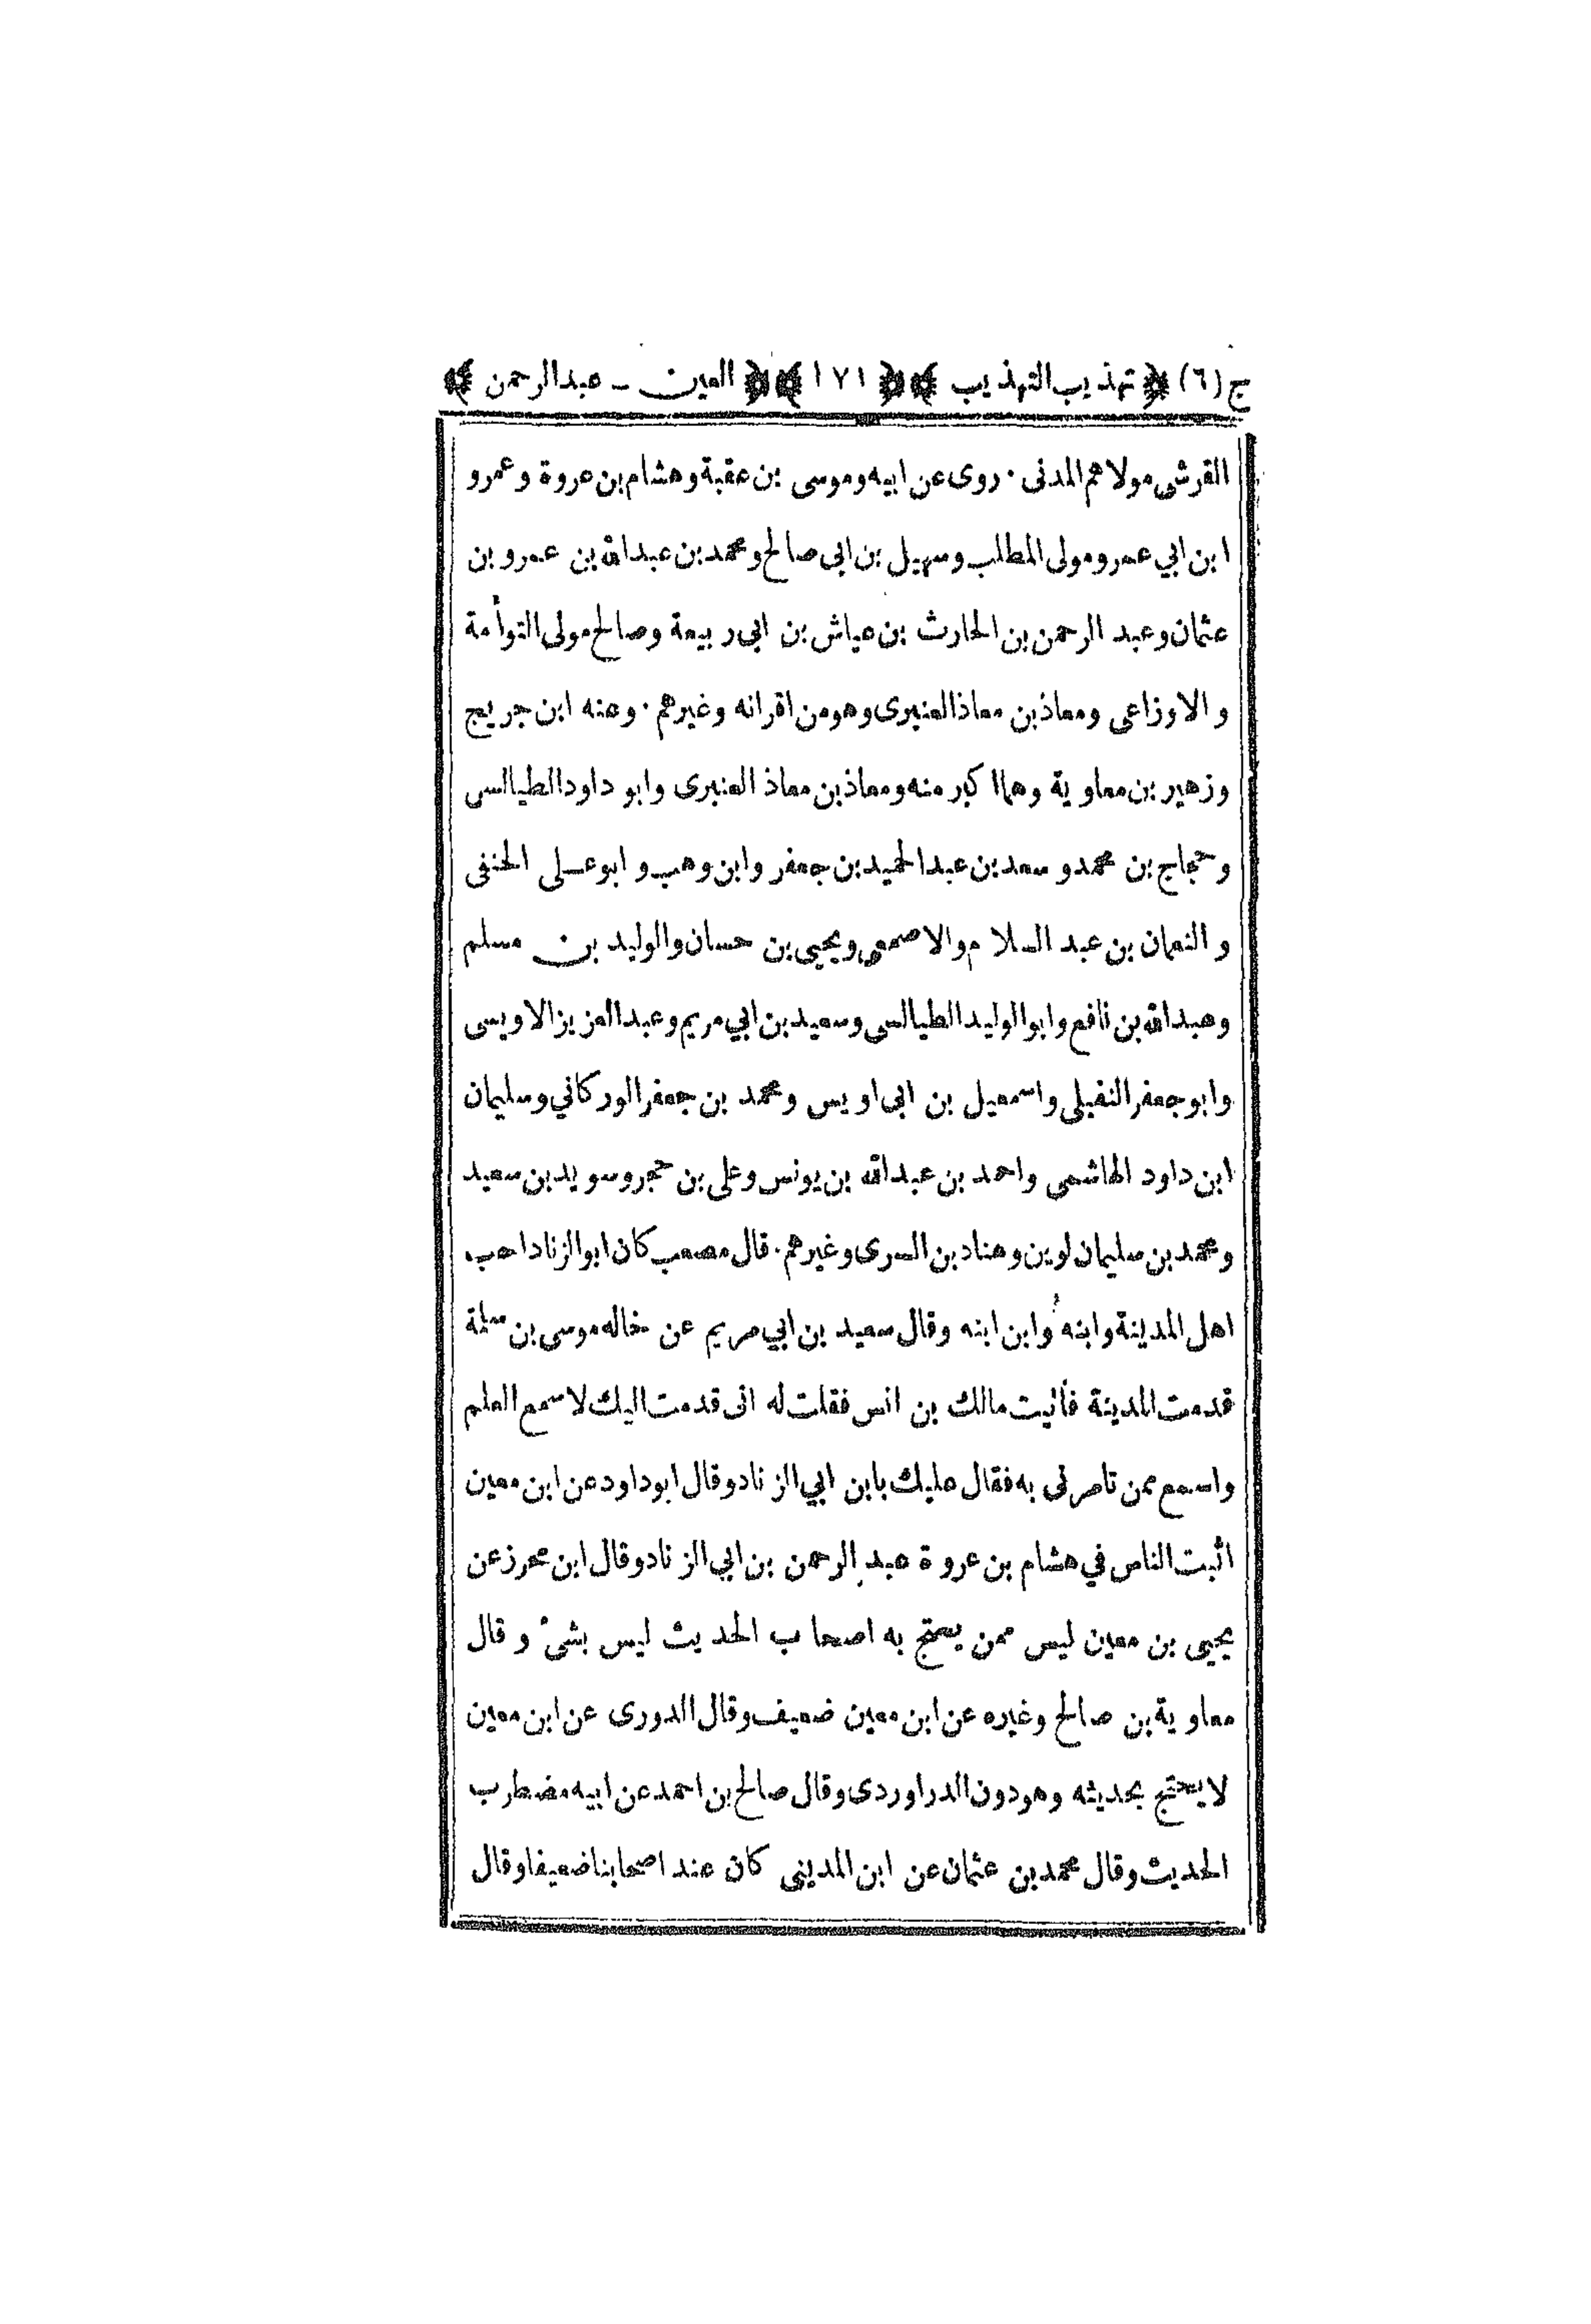 ج (٦) ﴿ تهذيب التهذيب ﴾ ﴿ ١٧١ ﴾ ﴿ العين - عبدالرحمن ﴾
القرشى مولاهم المدنى . روى عن ابيه وموسى بن عقبة وهشام بن عروة وعمرو
ابن ابي عمرو مولى المطلب وسهيل بن ابى صالح ومحمد بن عبدالله بن عمرو بن
عثمان وعبد الرحمن بن الحارث بن عياش بن ابى ربيعة وصالح مولى التوأمة
و الاوزاعى ومعاذ بن معاذ العنبرى وهو من اقرانه وغيرهم . وعنه ابن جريج
وزهير بن معاوية وهما اكبر منه ومعاذ بن معاذ العنبرى وابو داود الطيالسى
وحجاج بن محمد و سعد بن عبد الحميد بن جعفر وابن وهب و ابو عـلى الحنفى
و النعمان بن عبد السلام والاصمعى ويحيى بن حسان والوليد بن مسلم
وعبدالله بن نافع وابو الوليد الطيالسى وسعيد بن ابي مريم وعبد العزيز الاويسى
وابو جعفر النفيلى واسمعيل بن ابى اويس ومحمد بن جعفر الوركاني وسليمان
ابن داود الهاشمى واحمد بن عبدالله بن يونس وعلى بن حجر وسويد بن سعيد
ومحمد بن سليمان لوين وهناد بن السرى وغيرهم . قال مصعب كان ابو الزناد احب
اهل المدينة وابنه وابن ابنه وقال سعيد بن ابي مريم عن خاله موسى بن سلمة
قدمت المدينة فأتيت مالك بن انس فقلت له انى قدمت اليك لاسمع العلم
واسمع ممن تامرنى به فقال عليك بابن ابي الزناد وقال ابوداود عن ابن معين
اثبت الناس في هشام بن عروة عبد الرحمن بن ابي الزناد وقال ابن محرز عن
يحيى بن معين ليس ممن يحتج به اصحاب الحديث ليس بشىء و قال
معاوية بن صالح وغيره عن ابن معين ضعيف وقال الدورى عن ابن معين
لا يحتج بحديثه وهو دون الدراوردى وقال صالح بن احمد عن ابيه مضطرب
الحديث وقال محمد بن عثمان عن ابن المدينى كان عند اصحابنا ضعيفا وقال